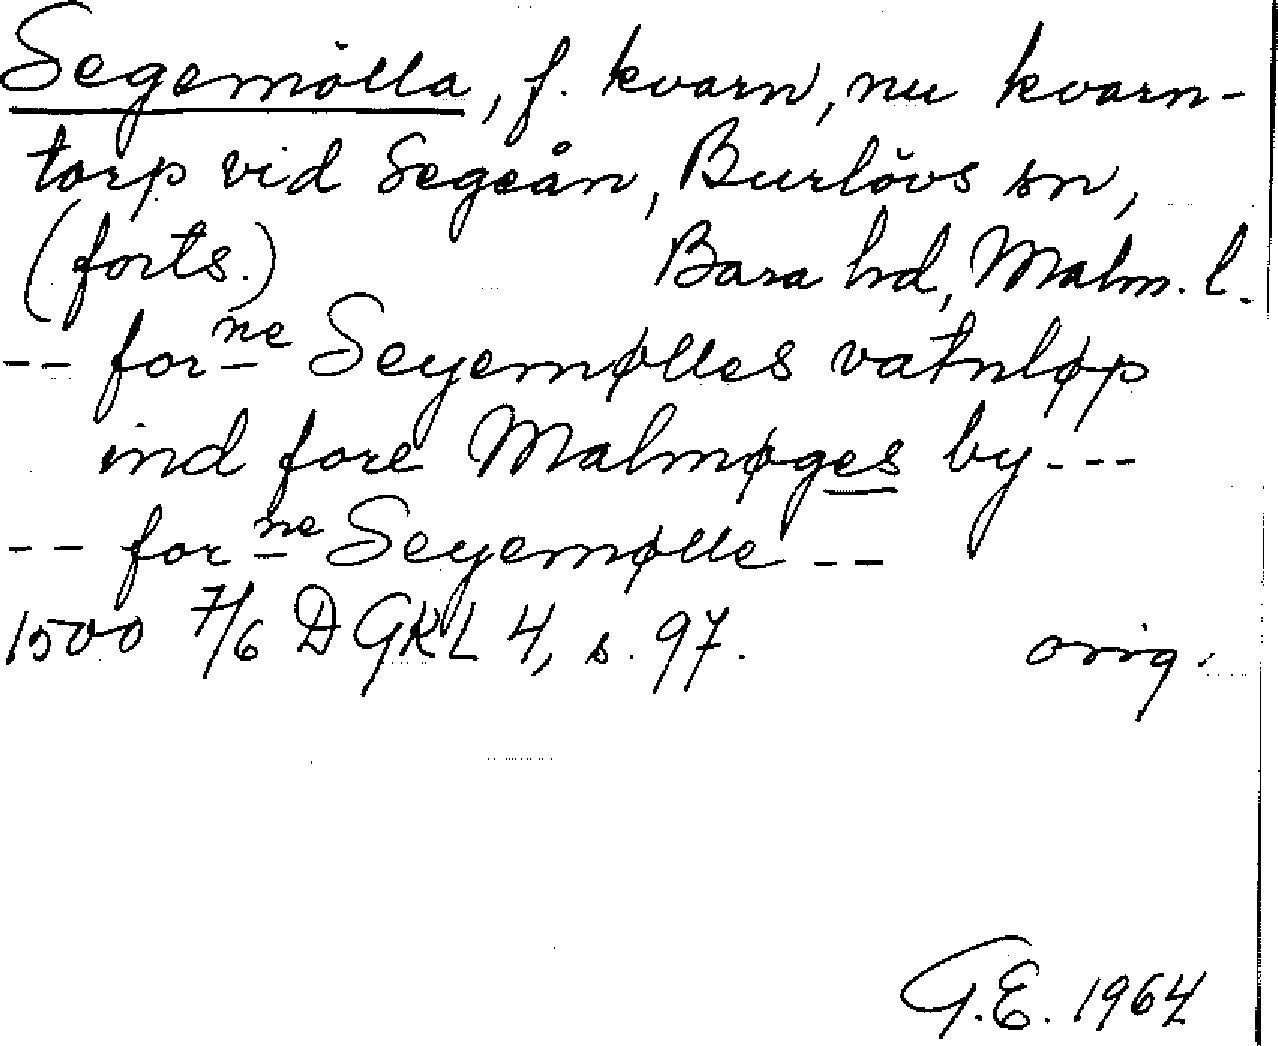 Segemölla, f. kvarn, nu kvarn-
torp vid Segeån, Burlövs sn,
(forts.) Bara hd, Malm. l.
-- for ne Seyemølles vatnløp
ind fore Malmøges by ---
-- for ne Seyemølle --
1500 7/6 DGKL 4, s. 97. orig.
G.E. 1964